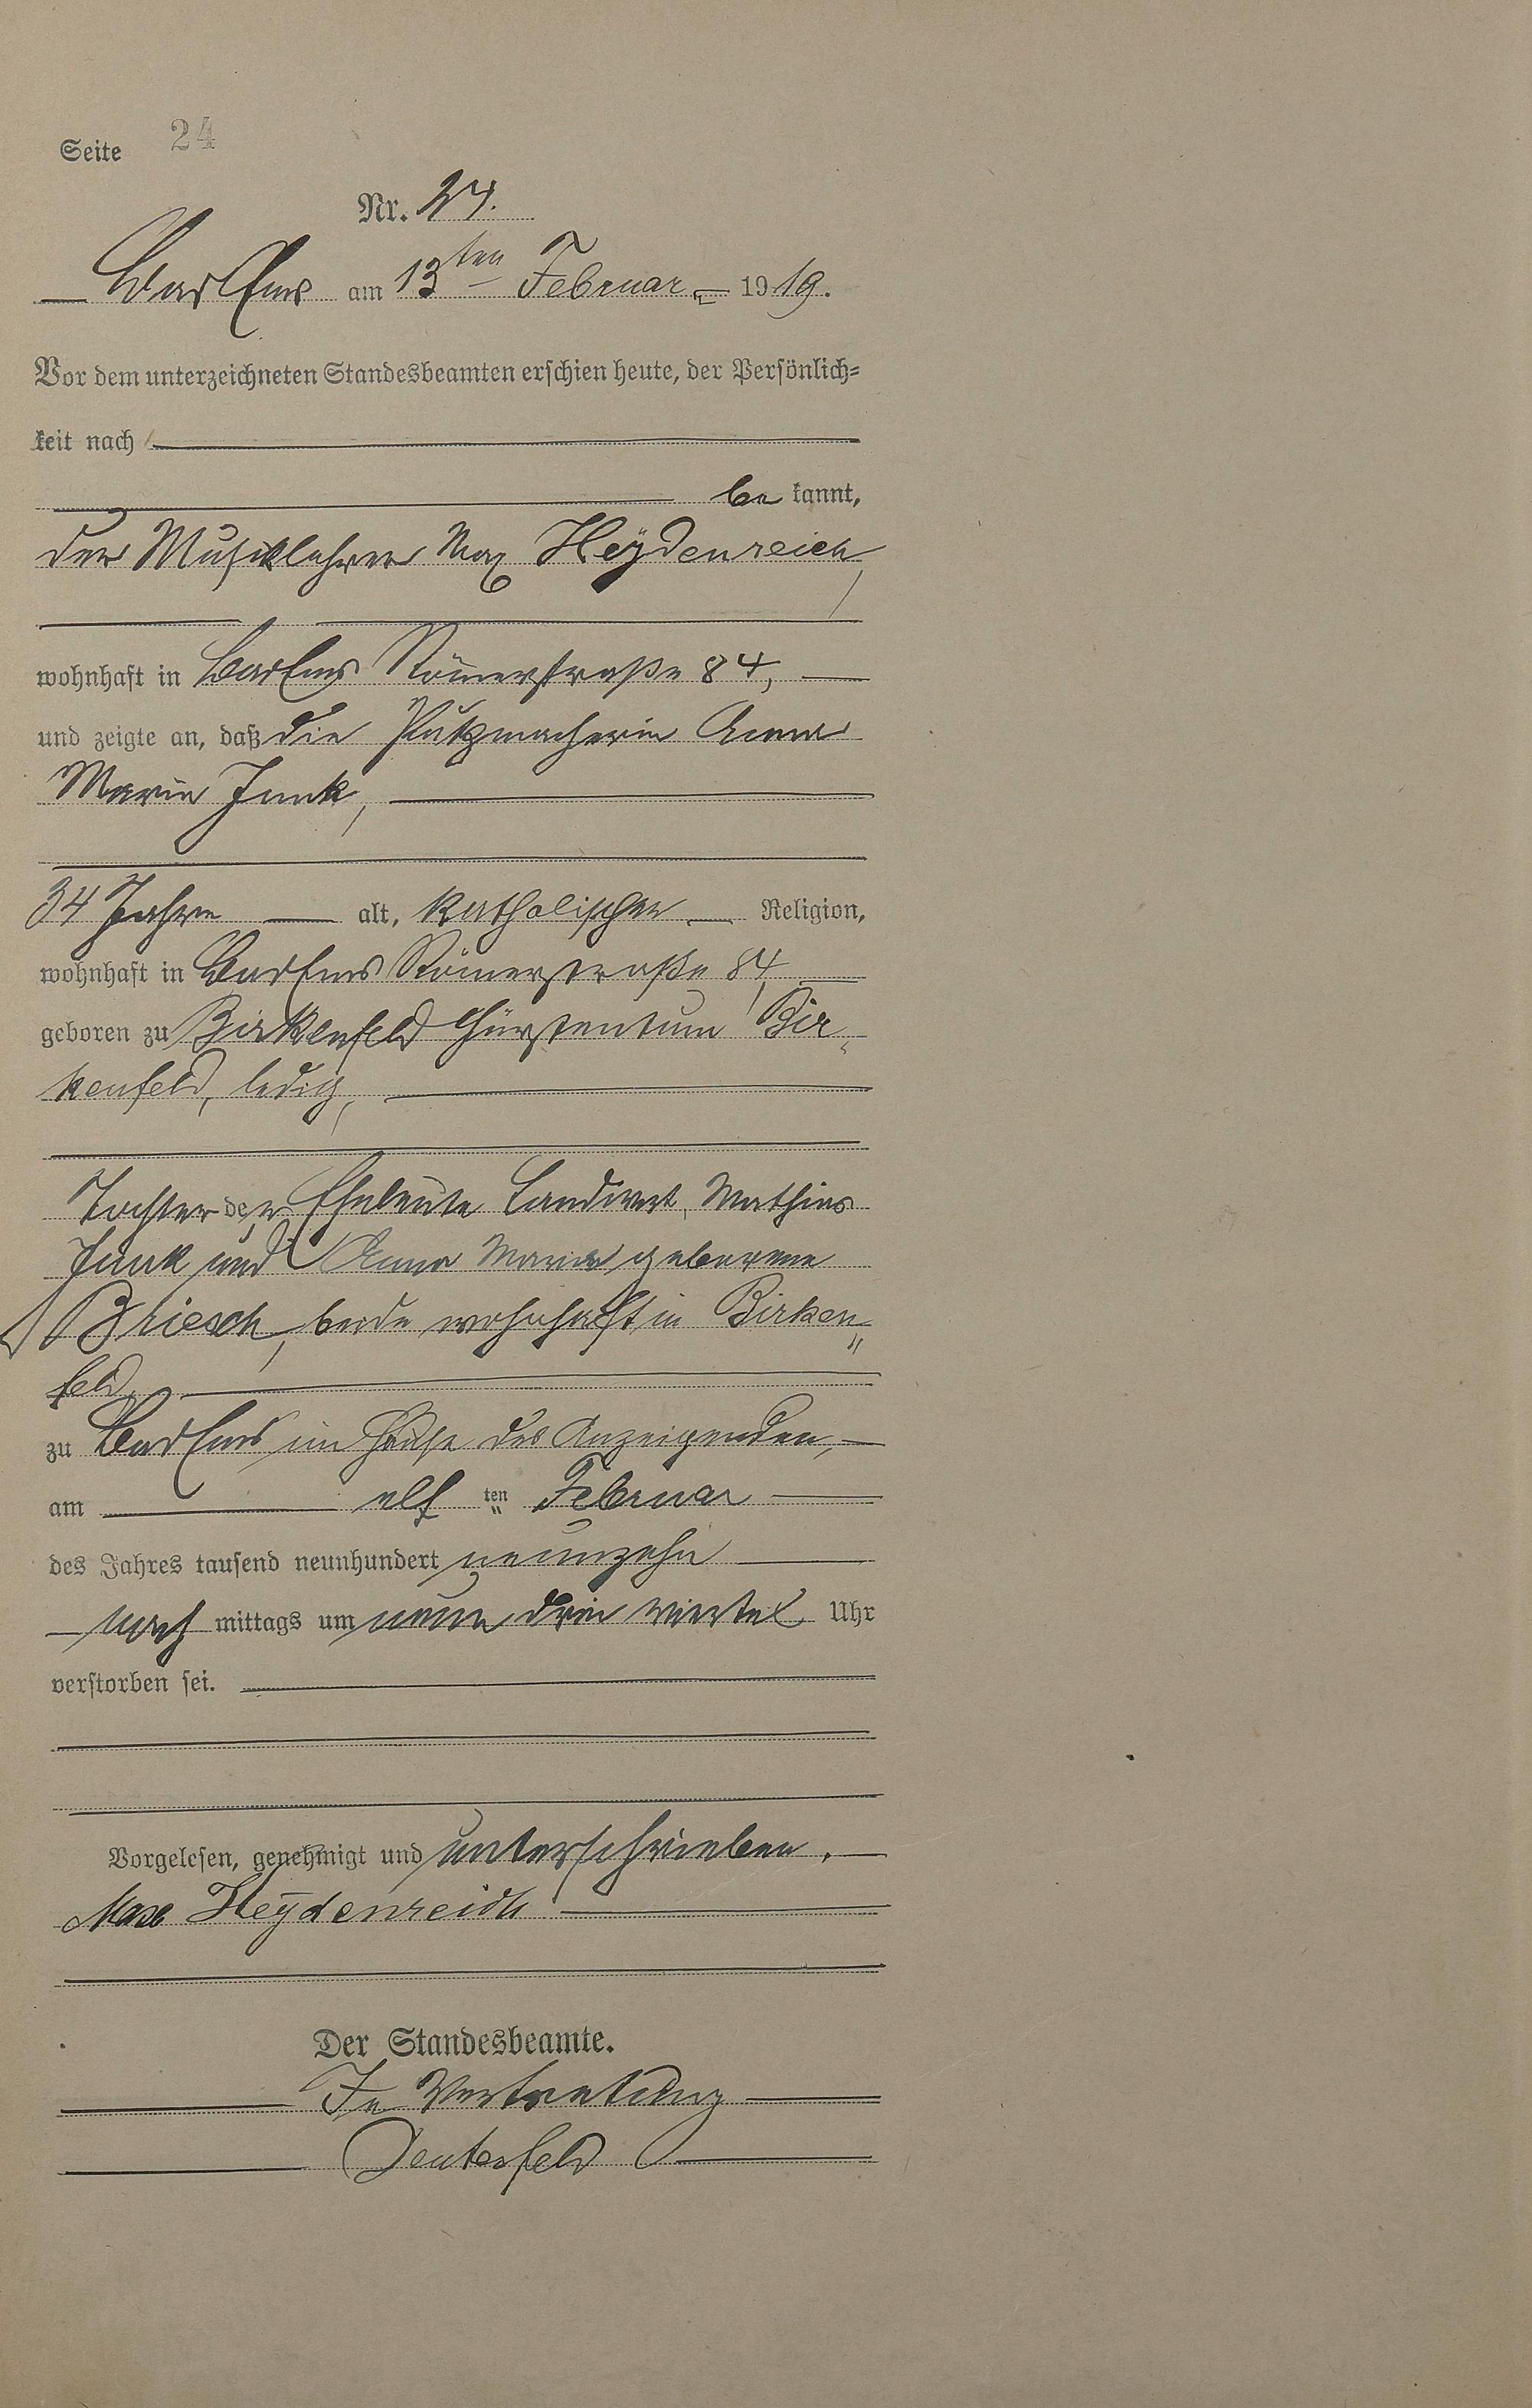 Seite 24
Nr. 24.
Bad Ems am 13ten Februar 1919.
Vor dem unterzeichneten Standesbeamten erschien heute, der Persönlich-
keit nach
be kannt,
der Musiklehrer Max Heÿdenreich,
wohnhaft in Bad Ems Römerstraße 84,
und zeigte an, daß die Putzmacherin Anna
Maria Junk,
34 Jahre alt, katholischer Religion,
wohnhaft in Bad Ems Römerstraße 84,
geboren zu Birkenfeld Fürstentum Bir-
kenfeld, ledig,
Tochter der Eheleute Landwirt, Mathias
Junk und Anna Maria geborene
Briesch, beide wohnhaft in Birken-
feld,
zu Bad Ems im Hause des Anzeigenden,
am elf ten Februar
des Jahres tausend neunhundert neunzehn
nach mittags um neun drei viertel Uhr
verstorben sei.
Vorgelesen, genehmigt und unterschrieben.
Max Heÿdenreich
Der Standesbeamte.
In Vertretung